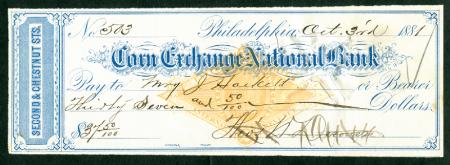 SECOND & CHESTNUT STS.
No. 513 Philadelphia, Oct. 3rd 1881
Corn Exchange National Bank
Pay to Mrs J Hackett or Bearer
Thirty Seven and 50/100 Dollars.
$37 50/100